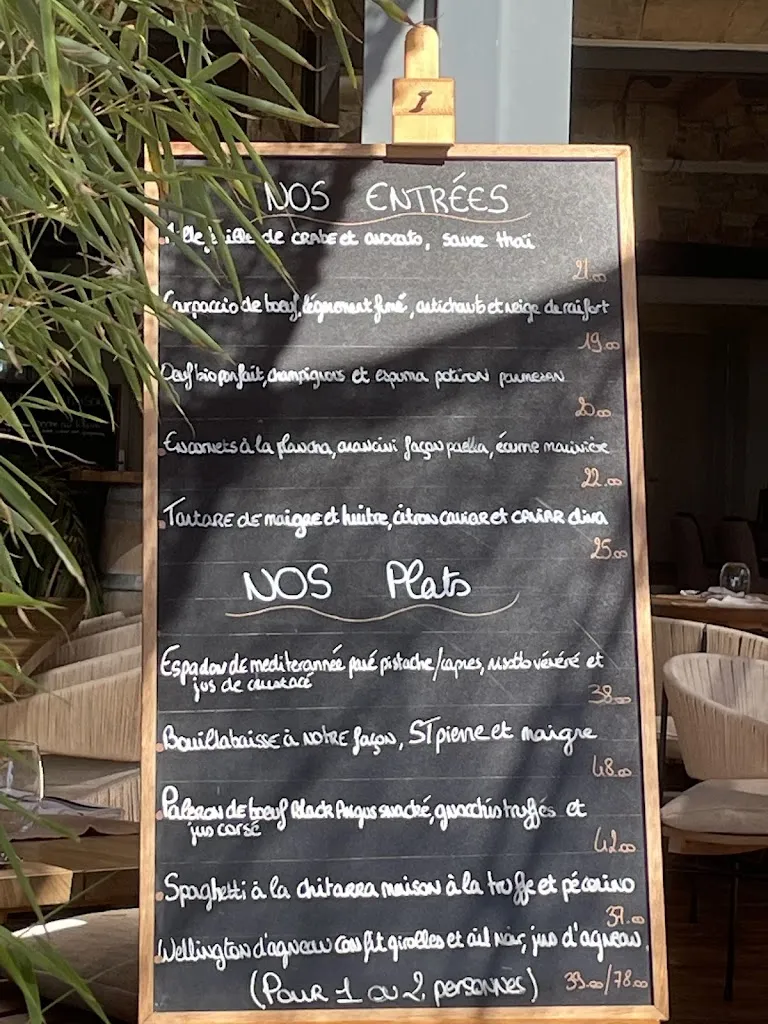 I
NOS ENTRÉES
de CRABE et avocats, sauce thaï
21.00
Carpaccio de boeuf, légèrement fumé, artichauts et neige de raifort
19.00
Oeuf bio parfait, champignons et espuma potiron parmesan
20.00
Encornets à la plancha, arancini façon paella, écume marinière
22.00
Tartare de maigre et huitre, citron caviar et CAVIAR diva
25.00
NOS Plats
Espadon de mediterannée pané pistache/capres, risotto vénéré et
jus de crustacé
38.00
Bouillabaisse à NOTRE façon, ST pierre et maigre
48.00
Paleron de boeuf Black Angus snacké, gnocchis truffés et
jus corsé
42.00
Spaghetti à la chitarra maison à la truffe et pécorino
Wellington d'agneau confit girolles et ail noir, jus d'agneau.
(Pour 1 ou 2 personnes) 39.00/78.00